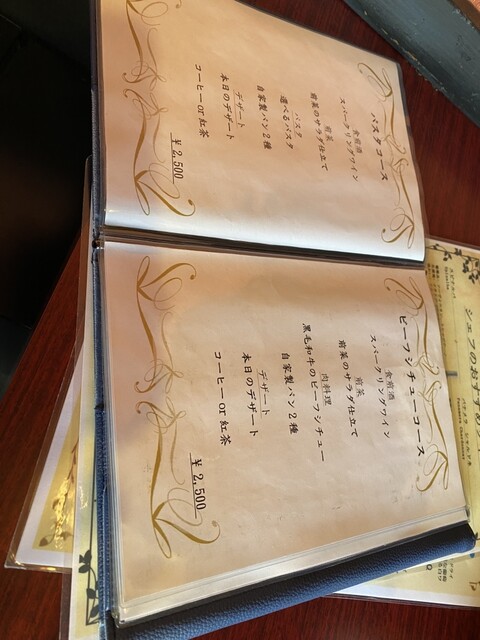 パスタコース
食前酒
スパークリングワイン
前菜
前菜のサラダ仕立て
パスタ
選べるパスタ
自家製パン2種
デザート
本日のデザート
コーヒー or 紅茶
¥2,500
ビーフシチューコース
食前酒
スパークリングワイン
前菜
前菜のサラダ仕立て
肉料理
黒毛和牛のビーフシチュー
自家製パン2種
デザート
本日のデザート
コーヒー or 紅茶
¥2,500
シェフのおすすめ